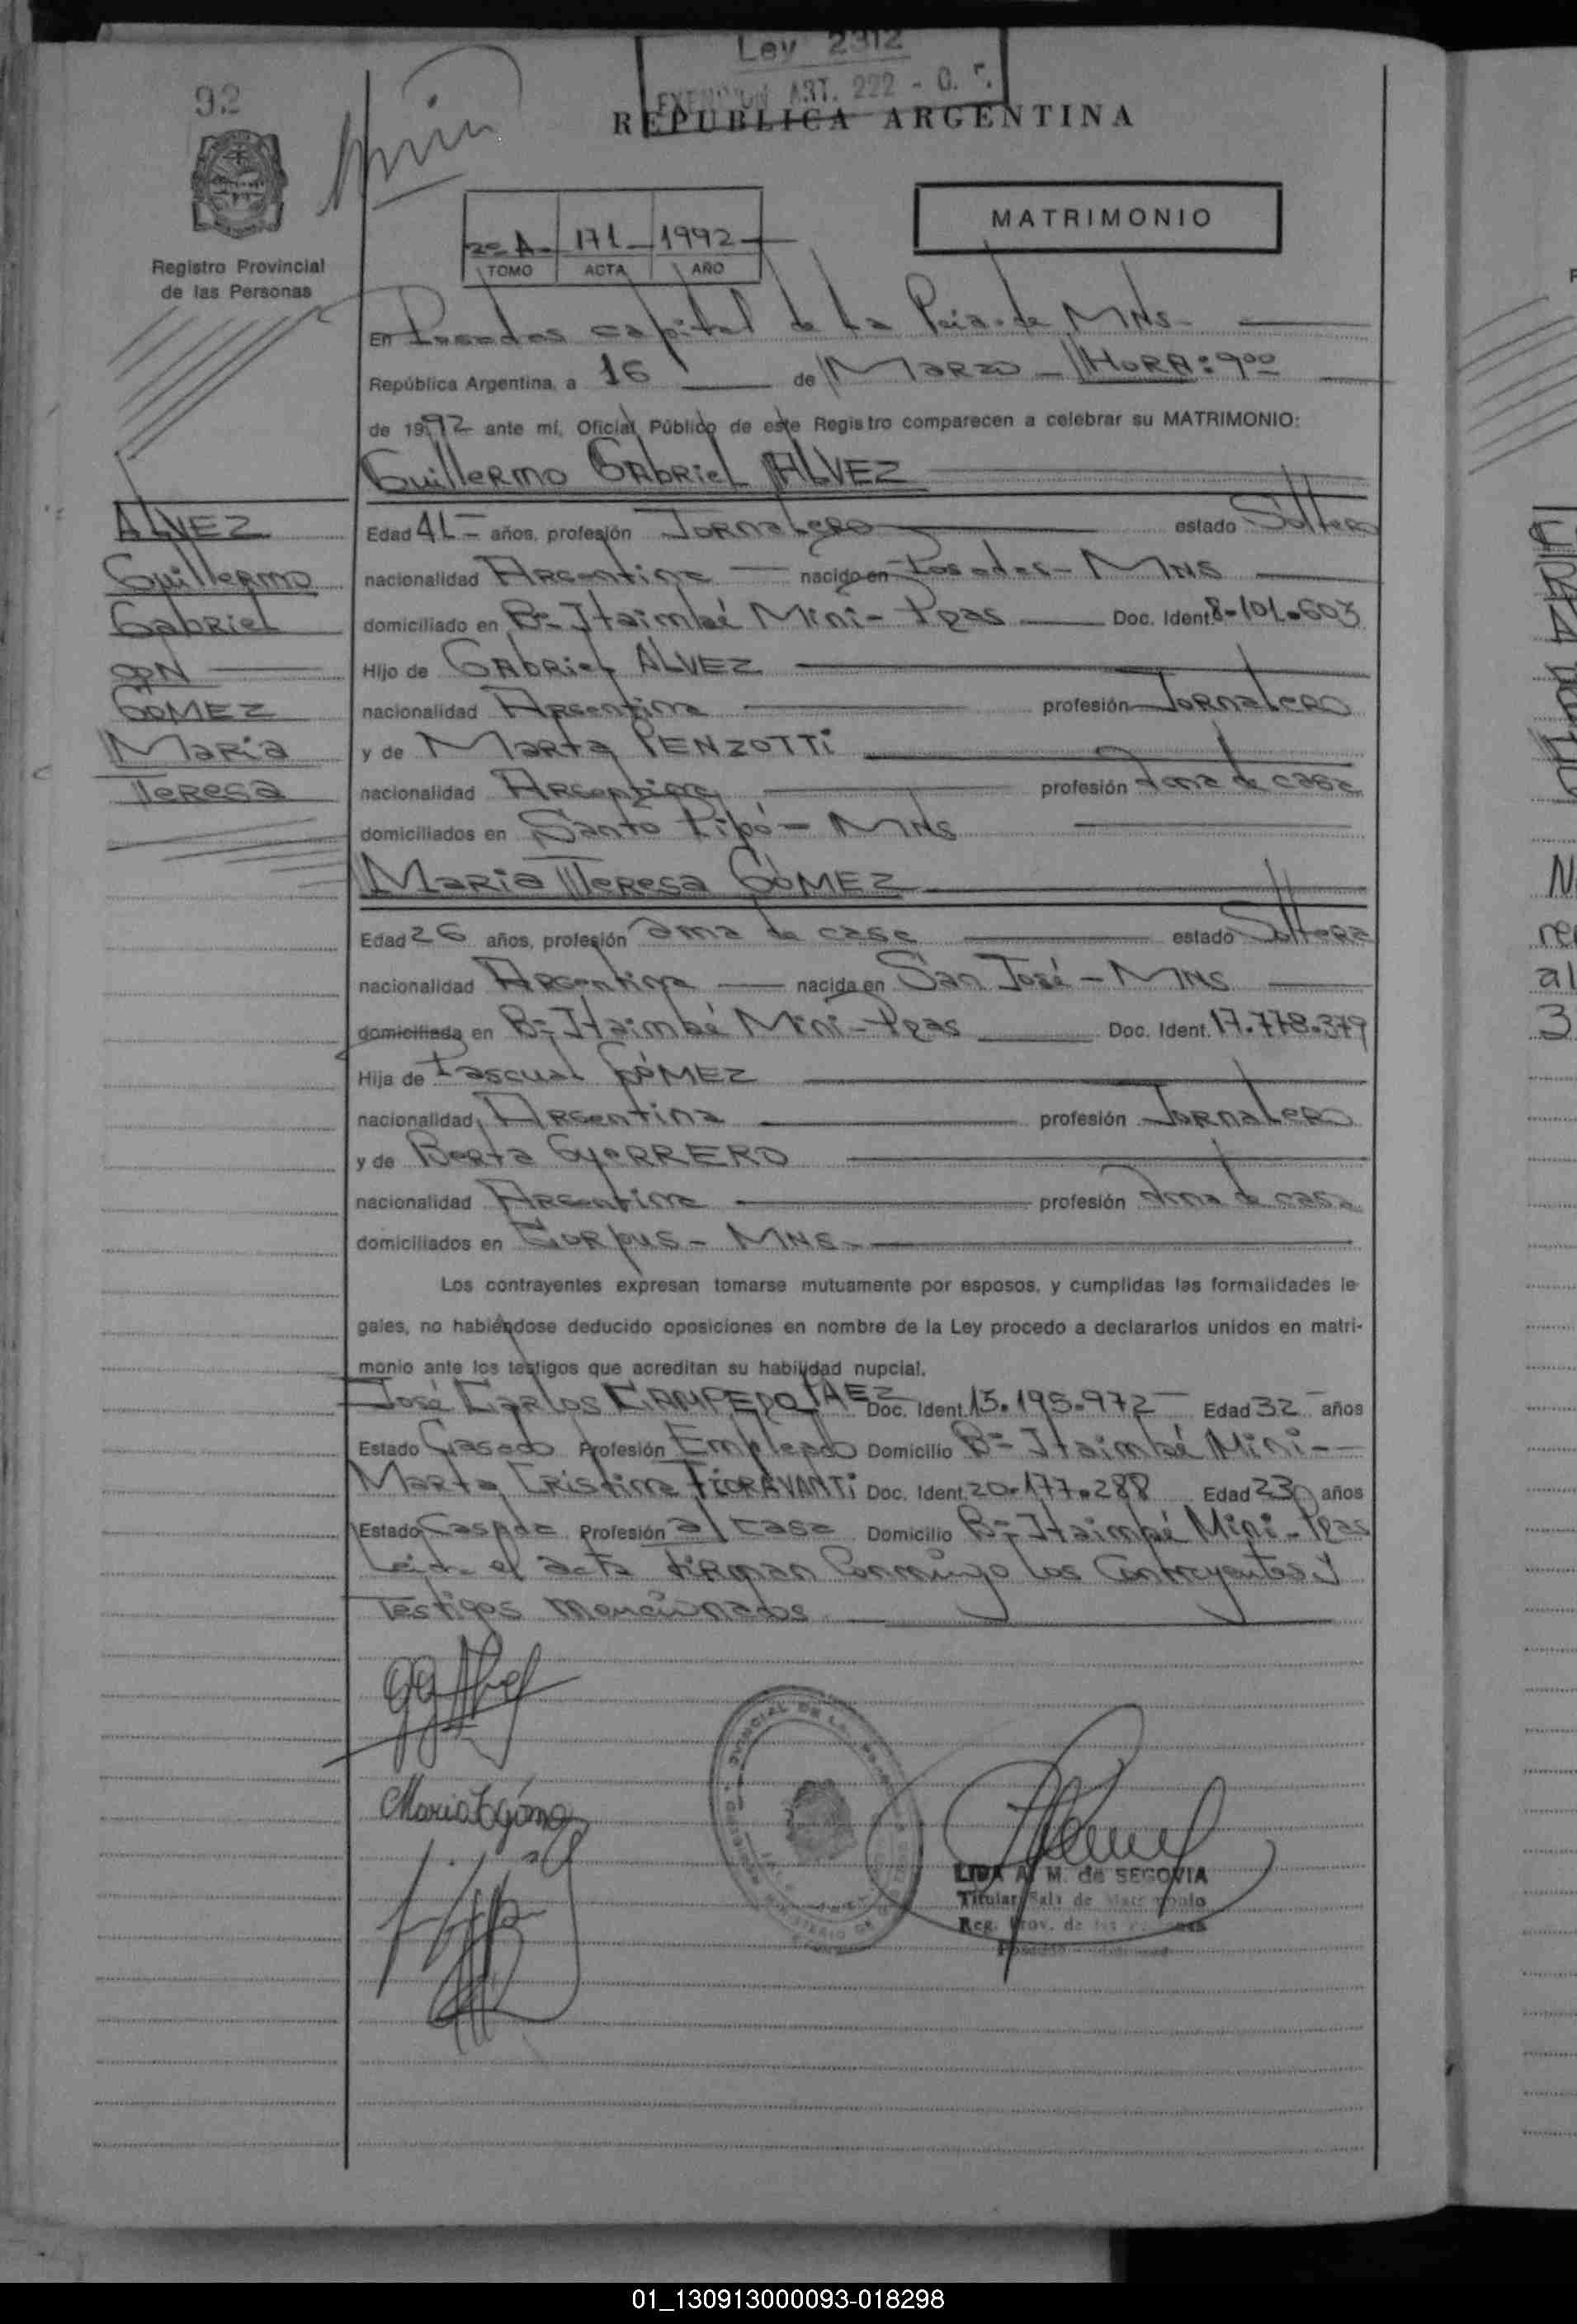 Ley 2312
EXENCION ART. 222 - C.
92
REPUBLICA ARGENTINA
MATRIMONIO
2º A- 171- 1992-
TOMO ACTA AÑO
Registro Provincial
de las Personas
En Posadas capital de la Pcia. de MNS-
República Argentina, a 16 de Marzo - HORA: 9⁰⁰
de 1992 ante mí, Oficial Público de este Registro comparecen a celebrar su MATRIMONIO:
Guillermo Gabriel ALVEZ
ALVEZ
Guillermo
Gabriel
CON
GOMEZ
Maria
Teresa
Edad 41- años, profesión Jornalero estado Soltero
nacionalidad Argentina nacido en Posadas- MNS
domiciliado en Bº Itaimbé Mini- Pdas Doc. Ident. 8-101.603
Hijo de Gabriel ALVEZ
nacionalidad Argentina profesión Jornalero
y de Marta PENZOTTi
nacionalidad Argentina profesión Ama de casa
domiciliados en Santo Pipó - MNS
Maria Teresa GÓMEZ
Edad 26 años, profesión ama de casa estado Soltera
nacionalidad Argentina nacida en San José - MNS
domiciliada en Bº Itaimbé Mini- Pdas Doc. Ident. 17.778.379
Hija de Pascual GÓMEZ
nacionalidad Argentina profesión Jornalero
y de Berta GUERRERO
nacionalidad Argentina profesión Ama de casa
domiciliados en Corpus - MNS-
Los contrayentes expresan tomarse mutuamente por esposos, y cumplidas las formalidades le-
gales, no habiéndose deducido oposiciones en nombre de la Ley procedo a declararlos unidos en matri-
monio ante los testigos que acreditan su habilidad nupcial.
José Carlos Doc. Ident. 13.195.972- Edad 32 años
Estado Casado Profesión Empleado Domicilio Bº Itaimbé Mini-
Marta Cristina FIORAVANTi Doc. Ident. 20.177.288 Edad 23 años
Estado Casada Profesión a/ casa Domicilio Bº Itaimbé Mini- Pdas
Leida el acta firman Conmigo los Contrayentes y
Testigos mencionados
LIDA A. M. de SEGOVIA
Titular Sala de Matrimonio
Reg. Prov. de las Personas
01_130913000093-018298